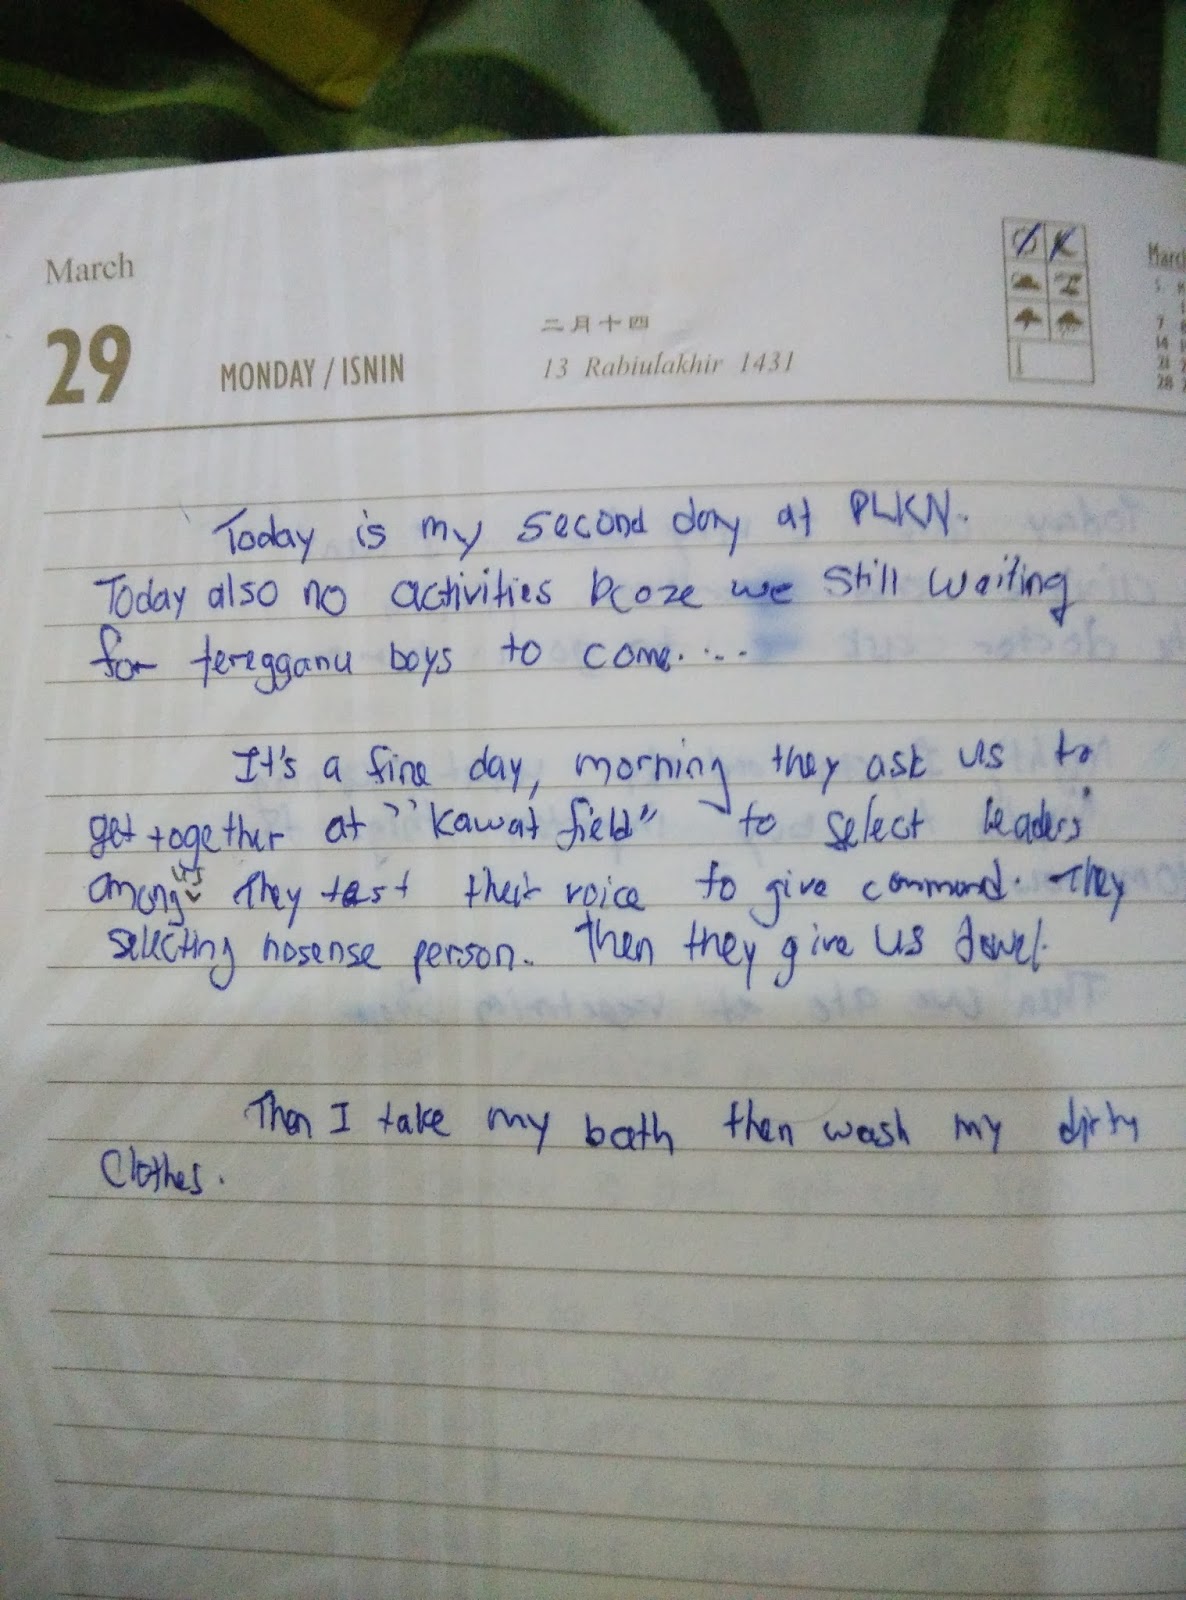 March
29
MONDAY / ISNIN
二月十四
13 Rabiulakhir 1431
March
7
14
21
28
Today is my second day at PLKN.
Today also no activities bcoze we still waiting
for teregganu boys to come.....
It's a fine day, morning they ask us to
get together at "kawat field" to select leaders
among us They test their voice to give command. They
selecting nosense person.. Then they give us towel.
Then I take my bath then wash my dirty
clothes.